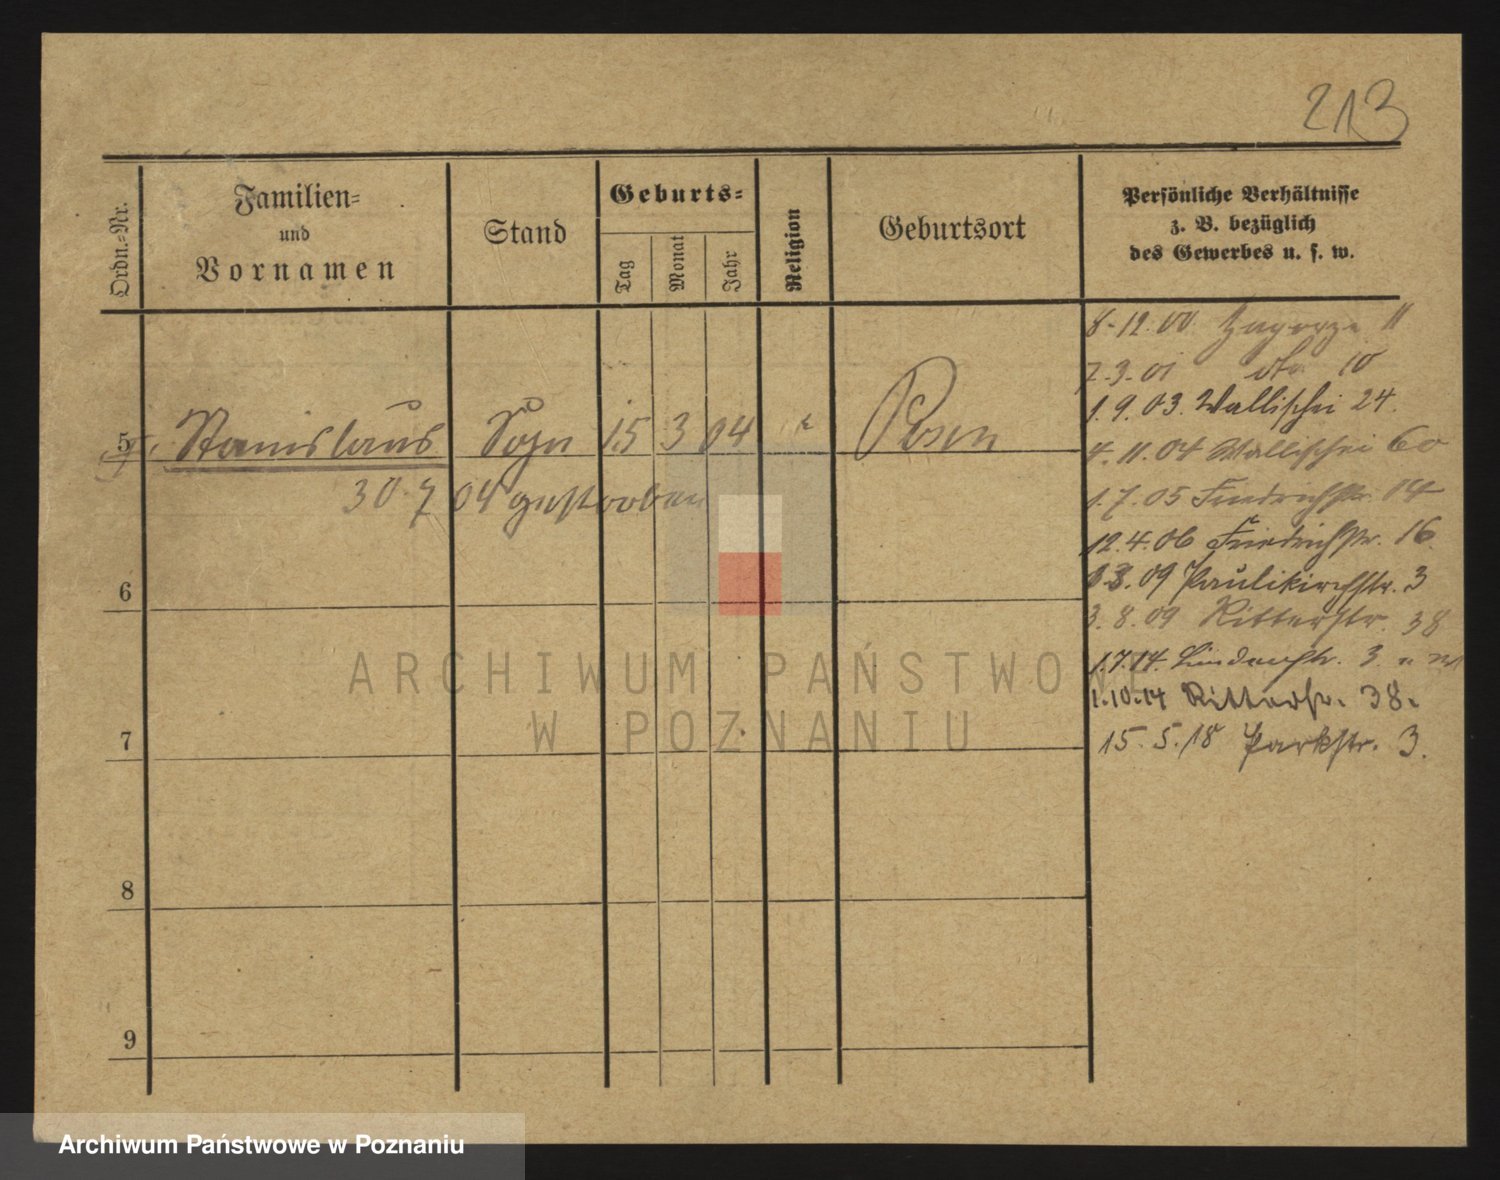 213
Ordn.-Nr.
Familien-
und
Vornamen
Stand
Geburts-
Tag
Monat
Jahr
Religion
Geburtsort
Persönliche Verhältnisse
z. B. bezüglich
des Gewerbes u. s. w.
8.12.00 Zagorze 11
2.3.01 dto 10
1.9.03. Wallischei 24.
5 Stanislaus Sohn 15 3 04 k Posen
4.11.04 Wallischei 60
30.7.04 gestorben
1.7.05 Friedrichstr. 14
12.4.06 Friedrichstr. 16.
3.09 Paulikirchstr. 3
6
3.8.09 Ritterstr. 38
1.7.14. Lindenstr. 3.
1.10.14 Ritterstr. 38.
7
15.5.18 Parkstr. 3.
8
9
ARCHIWUM PAŃSTWOWE
W POZNANIU
Archiwum Państwowe w Poznaniu